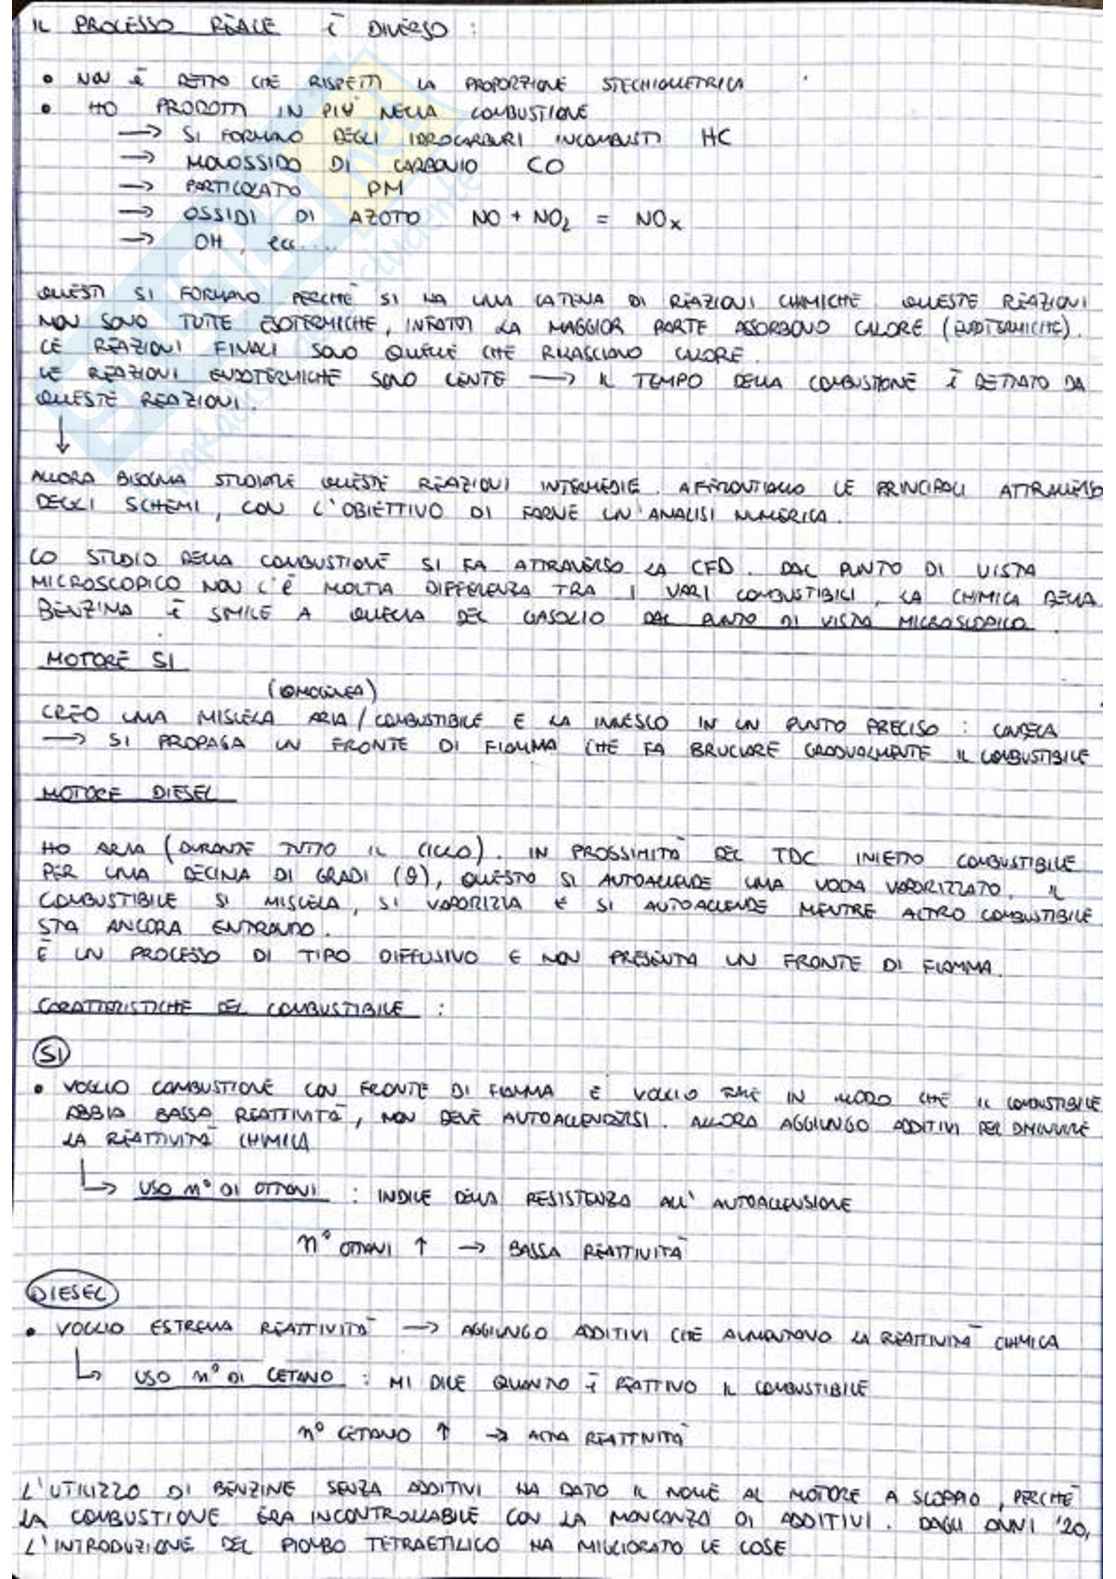 IL PROCESSO REALE È DIVERSO :
• NON È DETTO CHE RISPETTI LA PROPORZIONE STECHIOMETRICA
• HO PRODOTTI IN PIÙ NELLA COMBUSTIONE
→ SI FORMANO DEGLI IDROCARBURI INCOMBUSTI HC
→ MONOSSIDO DI CARBONIO CO
→ PARTICOLATO PM
→ OSSIDI DI AZOTO NO + NO₂ = NOₓ
→ OH, ecc....
QUESTI SI FORMANO PERCHÉ SI HA UNA CATENA DI REAZIONI CHIMICHE. QUESTE REAZIONI
NON SONO TUTTE ESOTERMICHE, INFATTI LA MAGGIOR PARTE ASSORBONO CALORE (ENDOTERMICHE).
LE REAZIONI FINALI SONO QUELLE CHE RILASCIANO CALORE.
LE REAZIONI ENDOTERMICHE SONO LENTE → IL TEMPO DELLA COMBUSTIONE È DETTATO DA
QUESTE REAZIONI.
↓
ALLORA BISOGNA STUDIARE QUESTE REAZIONI INTERMEDIE. AFFRONTIAMO LE PRINCIPALI ATTRAVERSO
DEGLI SCHEMI, CON L'OBIETTIVO DI FARNE UN'ANALISI NUMERICA.
LO STUDIO DELLA COMBUSTIONE SI FA ATTRAVERSO LA CFD. DAL PUNTO DI VISTA
MICROSCOPICO NON C'È MOLTIA DIFFERENZA TRA I VARI COMBUSTIBILI, LA CHIMICA DELLA
BENZINA È SIMILE A QUELLA DEL GASOLIO DAL PUNTO DI VISTA MICROSCOPICO.
MOTORE SI
(OMOGENEA)
CREO UNA MISCELA ARIA/COMBUSTIBILE E LA INNESCO IN UN PUNTO PRECISO : CANDELA
→ SI PROPAGA UN FRONTE DI FIAMMA CHE FA BRUCIARE GRADUALMENTE IL COMBUSTIBILE
MOTORE DIESEL
HO ARIA (DURANTE TUTTO IL CICLO). IN PROSSIMITÀ DEL TDC INIETTO COMBUSTIBILE
PER UNA DECINA DI GRADI (θ), QUESTO SI AUTOACCENDE UNA VOLTA VAPORIZZATO. IL
COMBUSTIBILE SI MISCELA, SI VAPORIZZA E SI AUTOACCENDE MENTRE ALTRO COMBUSTIBILE
STA ANCORA ENTRANDO.
È UN PROCESSO DI TIPO DIFFUSIVO E NON PRESENTA UN FRONTE DI FIAMMA.
CARATTERISTICHE DEL COMBUSTIBILE :
SI
• VOGLIO COMBUSTIONE CON FRONTE DI FIAMMA E VOGLIO FARE IN MODO CHE IL COMBUSTIBILE
ABBIA BASSA REATTIVITÀ, NON DEVE AUTOACCENDERSI. ALLORA AGGIUNGO ADDITIVI PER DIMINUIRE
LA REATTIVITÀ CHIMICA
↳ USO n° DI OTTANI : INDICE DELLA RESISTENZA ALL'AUTOACCENSIONE
n° OTTANI ↑ → BASSA REATTIVITÀ
DIESEL
• VOGLIO ESTREMA REATTIVITÀ → AGGIUNGO ADDITIVI CHE AUMENTANO LA REATTIVITÀ CHIMICA
↳ USO n° DI CETANO : MI DICE QUANTO È REATTIVO IL COMBUSTIBILE
n° CETANO ↑ → ALTA REATTIVITÀ
L'UTILIZZO DI BENZINE SENZA ADDITIVI HA DATO IL NOME AL MOTORE A SCOPPIO, PERCHÉ
LA COMBUSTIONE ERA INCONTROLLABILE CON LA MANCANZA DI ADDITIVI. DAGLI ANNI '20,
L'INTRODUZIONE DEL PIOMBO TETRAETILICO HA MIGLIORATO LE COSE